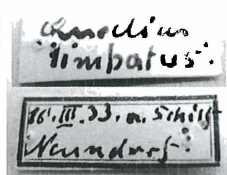 Quedius
limbatus.
16. III. 33. a. Schilf
Neundorf.